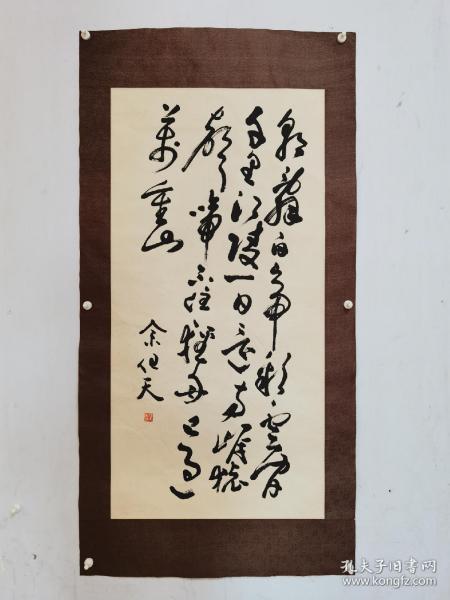 朝辞白帝彩云间
千里江陵一日还两岸猿
声啼不住轻舟已过
万重山
余任天
孔夫子旧书网
www.kongfz.com